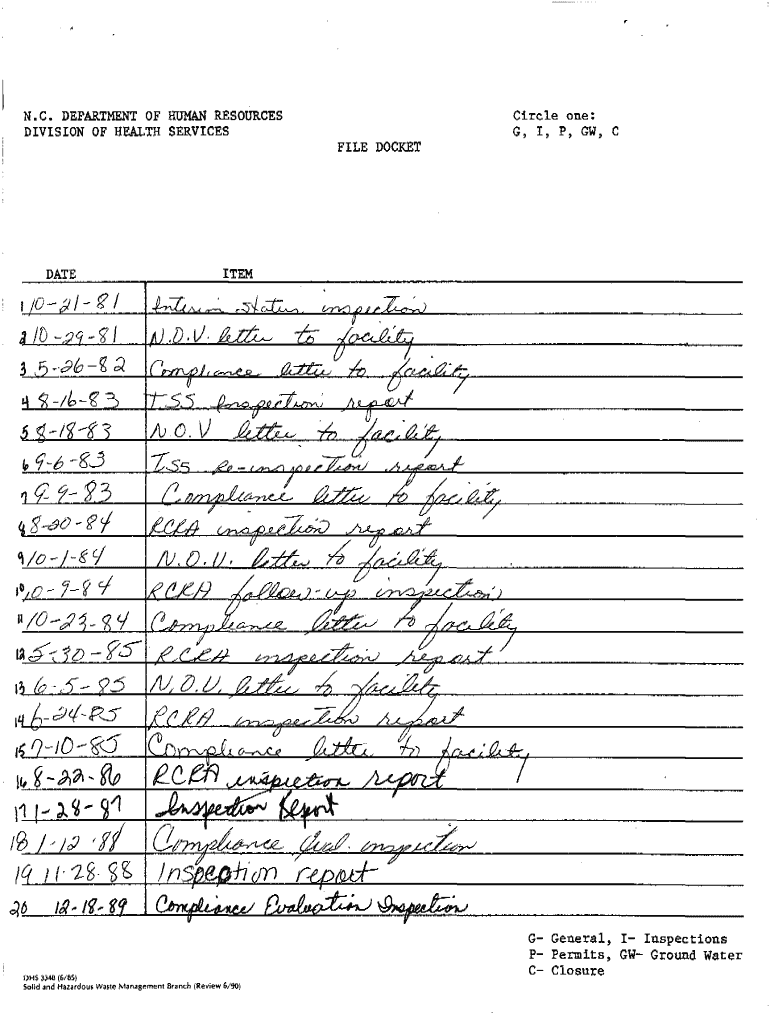 N.C. DEPARTMENT OF HUMAN RESOURCES Circle one:
DIVISION OF HEALTH SERVICES G, I, P, GW, C
FILE DOCKET
DATE ITEM
1 10-21-81 Interim Status inspection
2 10-29-81 N.O.V. letter to facility
3 5-26-82 Compliance letter to facility
4 8-16-83 ISS Inspection report
5 8-18-83 N.O.V letter to facility
6 9-6-83 ISS Re-inspection report
7 9-9-83 Compliance letter to facility
8 8-20-84 RCRA inspection report
9 10-1-84 N.O.V. letter to facility
10 10-9-84 RCRA follow-up inspection
11 10-23-84 Compliance letter to facility
12 5-30-85 RCRA inspection report
13 6-5-85 N.O.V. letter to facility
14 6-24-85 RCRA inspection report
15 7-10-85 Compliance letter to facility
16 8-22-86 RCRA inspection report
17 1-28-87 Inspection Report
18 1-12-88 Compliance Eval. inspection
19 11-28-88 Inspection report
20 12-18-89 Compliance Evaluation Inspection
G- General, I- Inspections
P- Permits, GW- Ground Water
C- Closure
DHS 3348 (6/85)
Solid and Hazardous Waste Management Branch (Review 6/90)